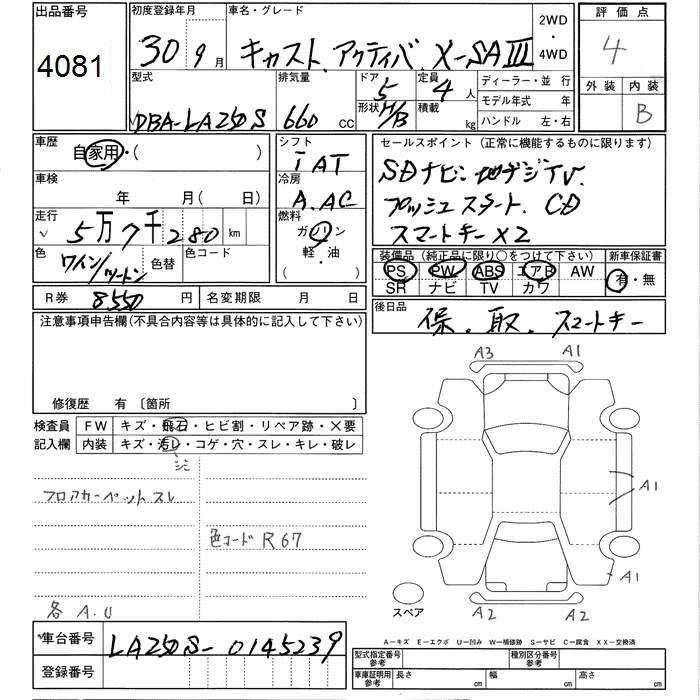 出品番号
4081
初度登録年月
30 9月
車名・グレード
キャスト アクティバ X-SAⅢ
2WD
・
4WD
評価点
4
外装 内装
B
型式
DBA-LA250S
排気量
660 CC
ドア
5
形状
H/B
定員
4人
積載
kg
ディーラー・並行
モデル年式 年
ハンドル 左・右
車歴
自家用・( )
車検
年 月( 日)
走行
5万7千280 km
色
ワイン/ツートン
色替
色コード
シフト
iAT
冷房
A.AC
燃料
ガソリン
軽・油
( )
セールスポイント (正常に機能するものに限ります)
SDナビ・地デジTV.
プッシュスタート. CD
スマートキーX2
装備品(純正品に限り○をつけて下さい)
PS PW ABS エアB AW
SR ナビ TV カワ
新車保証書
有・無
R券 8550円
名変期限 月 日
後日品
保.取.スマートキー
注意事項申告欄(不具合内容等は具体的に記入して下さい)
修復歴 有 〔箇所 〕
検査員
記入欄
FW キズ・飛石・ヒビ割・リペア跡・X要
内装 キズ・汚レ・コゲ・穴・スレ・キレ・破レ
シミ
フロアカーペットスレ
色コード R67
各 A.U
車台番号
LA250S-0145239
登録番号
A3 A1
A1
A1
A2 A2
スペア
A-キズ E-エクボ U-凹み W-補修跡 S-サビ C-腐食 XX-交換済
型式指定番号
参考
種別区分番号
参考
車庫証明用
参考
長さ cm
幅 cm
高さ cm